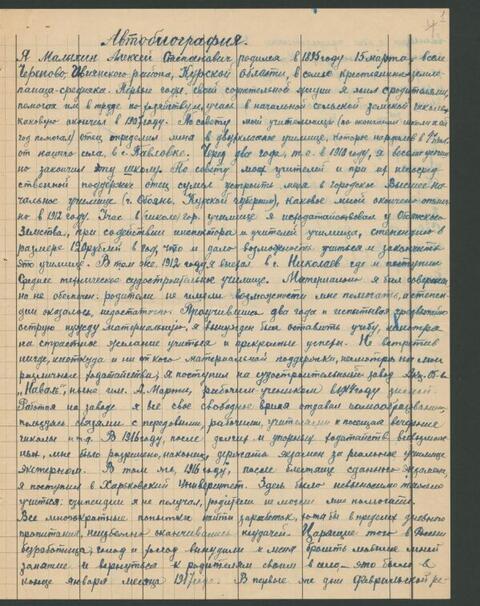 Автобиография.
Я Малыхин Алексей Степанович, родился в 1895 году 15 марта в селе
Черепово, Ивнянского района, Курской области, в семье крестьянина земле-
пашца-середняка. Первые годы своей сознательной жизни я жил с родителями,
помогал им в труде по хозяйству, учась в начальной сельской земской школе,
каковую окончил в 1907 году. По совету моей учительницы (по окончании школы я ещё
год помогал) отец определил меня в двухклассное училище, которое находилось в
от нашего села, в с. Павловке. Через два года, т.е. в 1910 году, я весьма успеш-
но закончил эту школу. По совету моих учителей и при их непосред
ственной поддержке отец сумел устроить меня в городское Высшее на-
чальное училище (г. Обоянь, Курской губернии), каковое мной окончено отлич-
но в 1912 году. Учась в школе гор. училище я исходатайствовал у Обоянского
Земства, при содействии инспектора и учителей училища, стипендию в
размере 120 рублей в год, что и дало возможность учиться и закончить
это училище. В том же 1912 году я выехал в г. Николаев где и поступил
Среднее техническое судостроительное училище. Материально я был совершен-
но не обеспечен: родители не имели возможности мне помогать, а стипен-
дии оказалось недостаточно. Проучившись два года и испытывая чрезвычайно
острую нужду материальную, я вынужден был оставить учёбу, несмотря
на страстное желание учиться и прекрасные успехи. Не встретив
нигде, ниоткуда и ни от кого материальной поддержки, несмотря на мои
различные ходатайства, я поступил на судостроительный завод Акц. О-ва
„Наваль", ныне им. А. Марти, рабочим-учеником в 1914 году
Работая на заводе я всё своё свободное время отдавал самообразованию,
пользуясь связями с передовыми рабочими, учителями и посещая вечерние
школы и т.д. В 1916 году, после долгих и упорных ходатайств
мне было разрешено, наконец, держать экзамен за реальное училище
экстерном. В том же, 1916 году, после блестяще сданного экзамена,
я поступил в Харьковский Университет. Здесь было невыносимо тяжело
учиться: стипендии я не получал, родители не могли мне помогать.
Все многократные попытки найти заработок, хотя бы в пределах дневного
пропитания, неизменно оканчивались неудачей. Царящие тогда в России
безработица, голод и холод вынудили и меня бросить любимое мной
занятие и вернуться к родителям своим в село — это было в
конце января месяца 1917 года. В первые же дни Февральской ре-